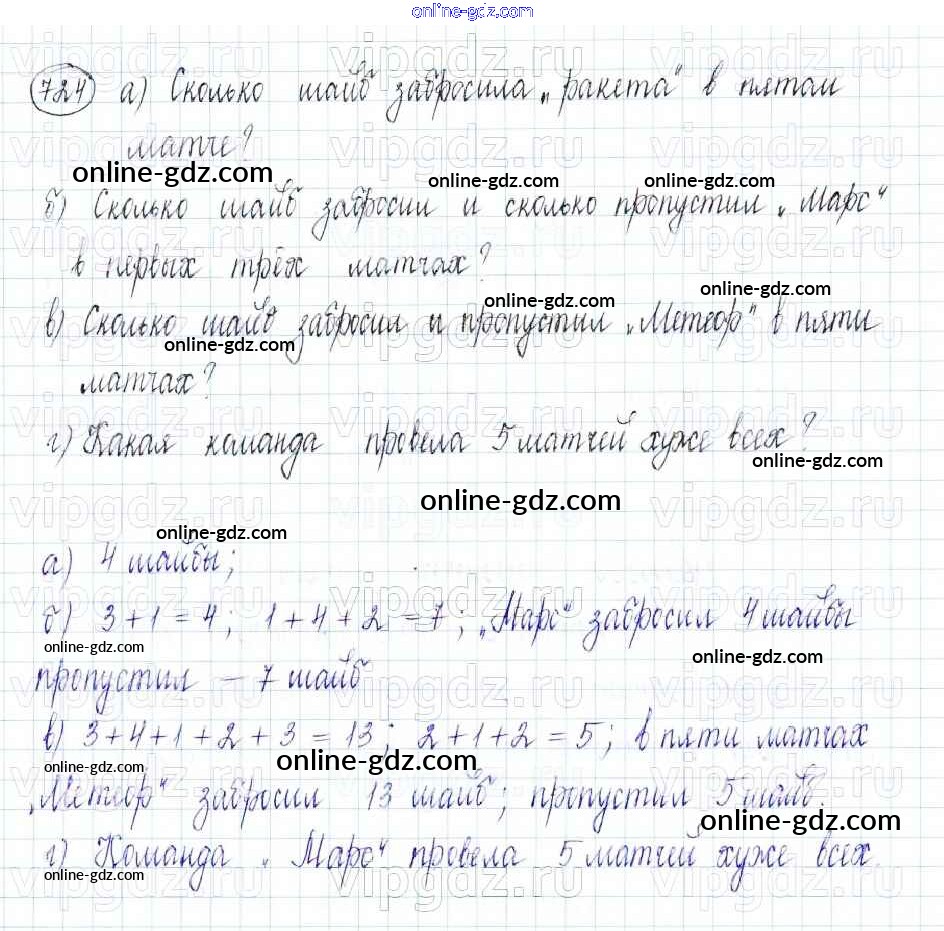 online-gdz.com
724 а) Сколько шайб забросила „ракета“ в пятом
матче?
online-gdz.com online-gdz.com online-gdz.com
б) Сколько шайб забросил и сколько пропустил „Марс“
в первых трёх матчах?
online-gdz.com online-gdz.com
в) Сколько шайб забросил и пропустил „Метеор“ в пяти
online-gdz.com
матчах?
г) Какая команда провела 5 матчей хуже всех?
online-gdz.com
online-gdz.com
online-gdz.com
а) 4 шайбы;
б) 3+1=4; 1+4+2=7; „Марс“ забросил 4 шайбы
online-gdz.com online-gdz.com
пропустил – 7 шайб
в) 3+4+1+2+3=13; 2+1+2=5; в пяти матчах
online-gdz.com online-gdz.com
„Метеор“ забросил 13 шайб; пропустил 5 шайб.
online-gdz.com
г) Команда „Марс“ провела 5 матчей хуже всех
online-gdz.com online-gdz.com